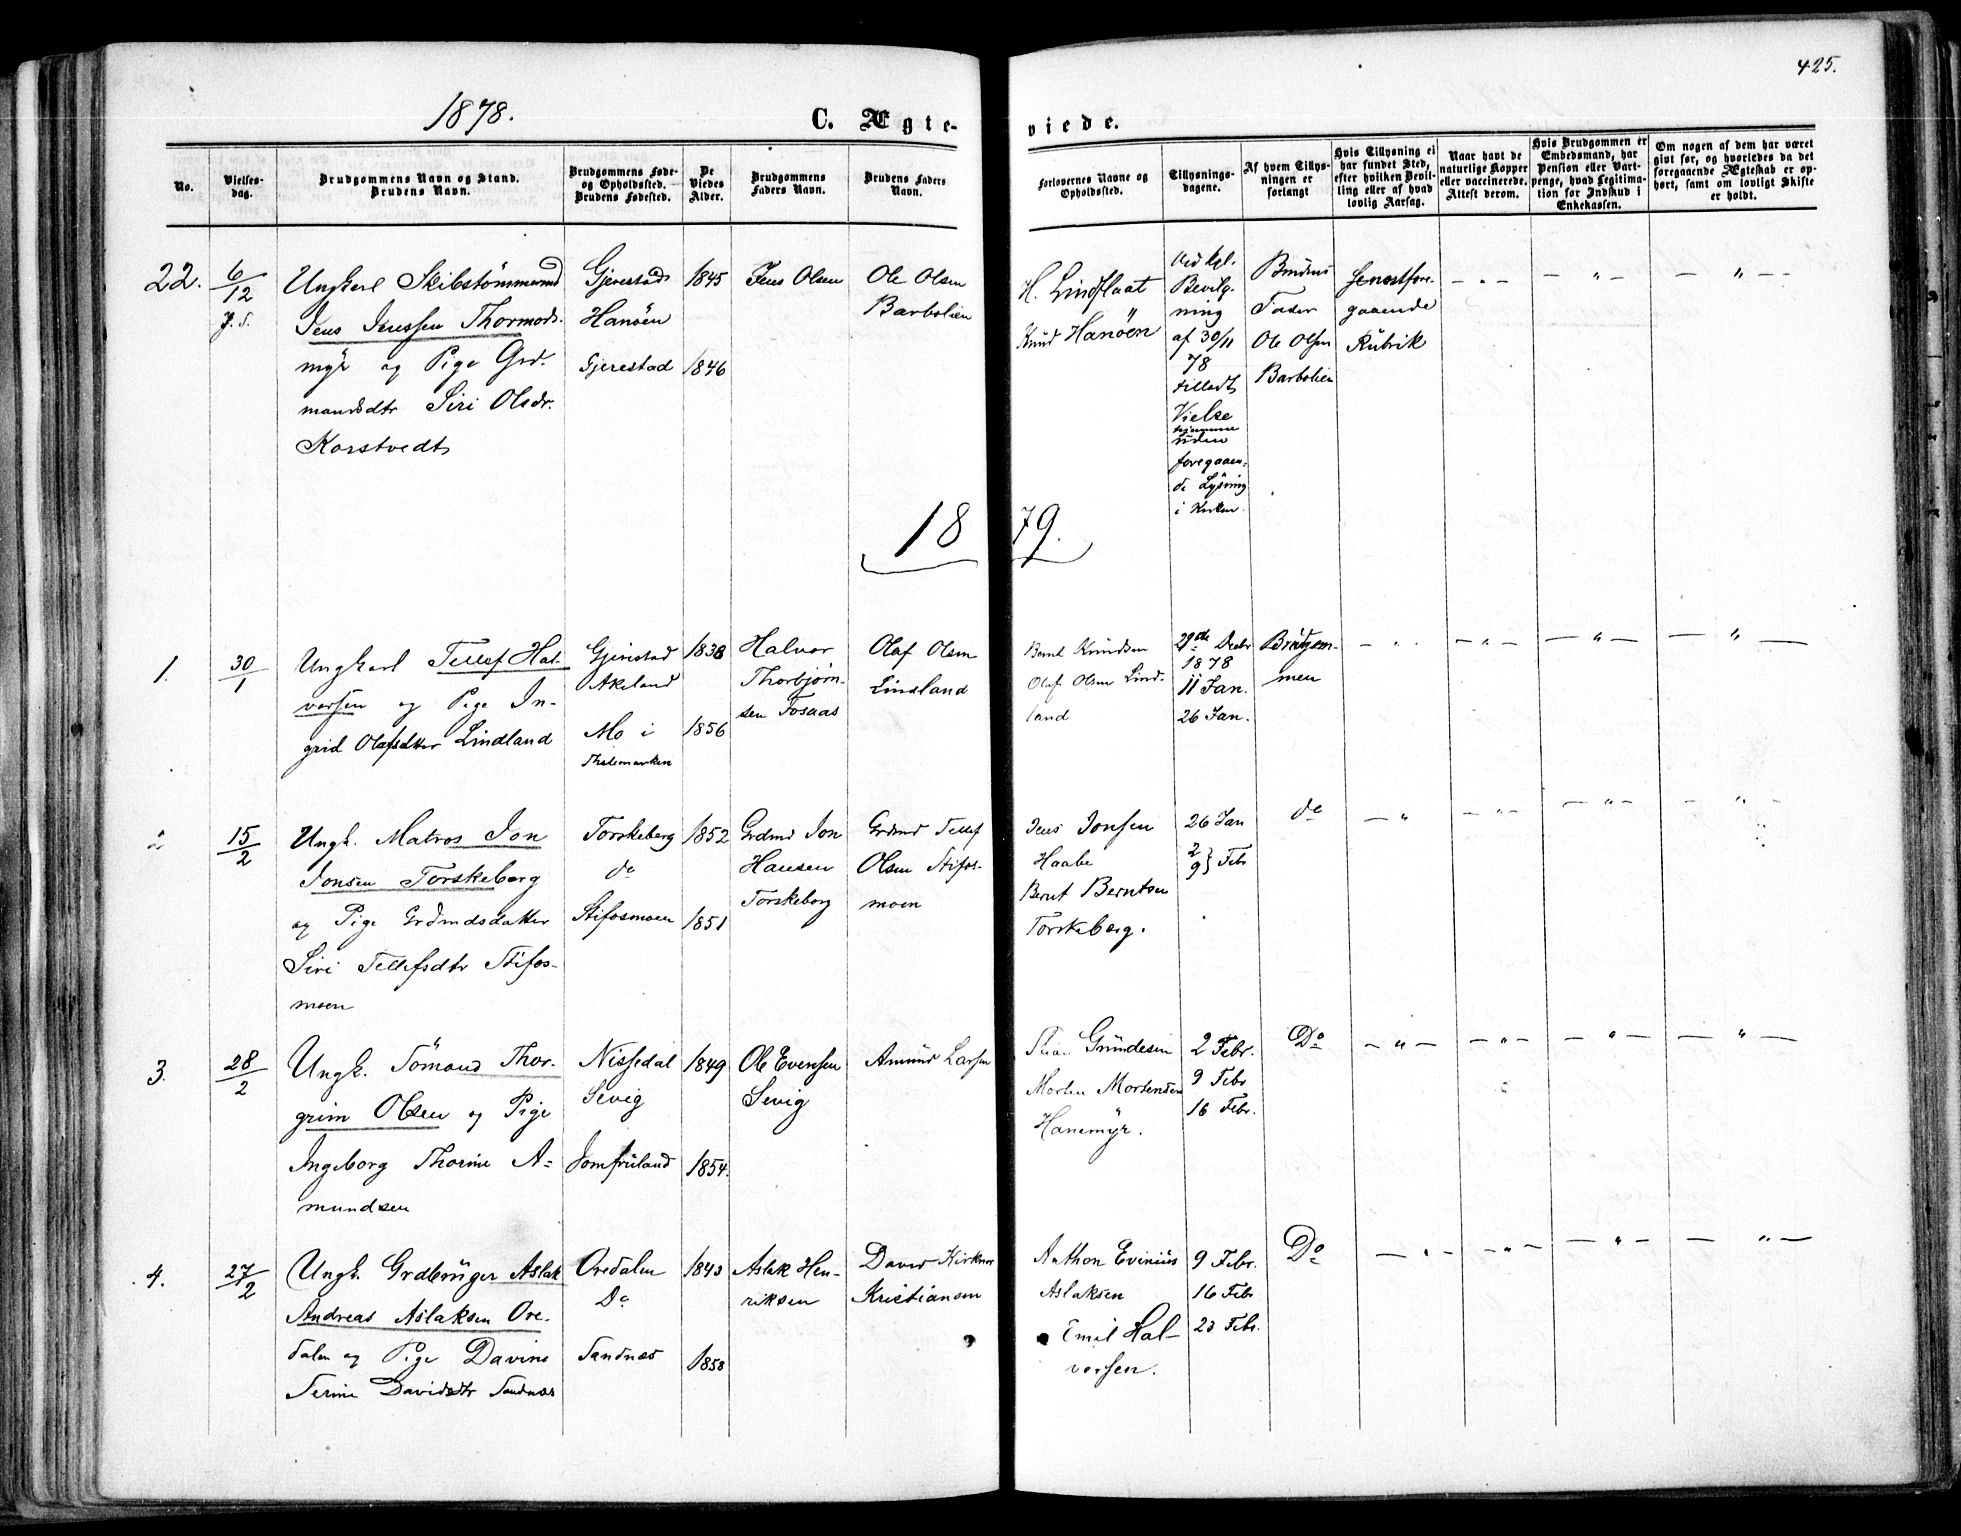 425.
1878.
C. Ægteviede.
No.
Vielsesdag.
Brudgommens Navn og Stand.
Brudens Navn.
Brudgommens Føde-
og Opholdssted.
Brudens Fødested.
De
Viedes
Alder.
Brudgommens
Faders Navn.
Brudens Faders
Navn.
Forlovernes Navne og
Opholdssted.
Tillysnings-
dagene.
Af hvem Tillys-
ningen er
forlangt
Hvis Tillysning ei
har fundet Sted,
efter hvilken Bevil-
ling eller af hvad
lovlig Aarsag.
Naar havt de
naturlige Kopper
eller vaccinerede.
Attest derom.
Hvis Brudgommen er
Embedsmand, har
Pension eller Vart-
penge, hvad Legitima-
tion for Indskud i
Enkekassen.
Om nogen af dem har været
givt før, og hvorledes da det
foregaaende Ægteskab er op-
hørt, samt om lovligt Skifte
er holdt.
22.
6/12
Ungkarl Skibstömmermd
Jens Jenssen Thormods-
myr og Pige Grd-
mandsdtr Siri Olsdr.
Korstvedt
Gjerestad
Hanöen
Gjerestad
1845
1846
Jens Olsen
Ole Olsen
Barbolien
H. Lindflaat
Knud Hanöen
Ved kgl.
Bevilg-
ning
af 30/11
78
tilladt
Vielse
hjemme
uden
foregaaen-
de Lysning
i Kirken.
Brudens
Fader
Ole Olsen
Barbolien
Genestfore-
gaaende
Rubrik
1879.
1.
30/1
Ungkarl Tellef Hal-
vorsen og Pige In-
grid Olafsdtter Lindland
Gjerestad
Akeland
Mo i
Thelemarken
1838
1856
Halvor
Thorbjørn-
sen Fosaas
Olaf Olsen
Lindland
Bernt Knudsen
Olaf Olsen Lind-
land
29de Decbr
1878
11 Jan.
26 Jan.
Brudgom-
men
2
15/2
Ungk. Matros Jon
Jonsen Torskeberg
og Pige Grdmdsdatter
Siri Tellefsdtr Stifos-
moen
Torskeberg
do
Stifosmoen
1852
1851
Grdmd Jon
Hansen
Torskeberg
Grdmd Tellef
Olsen Stifos-
moen
Jens Jonsen
Haabe
Bernt Berntsen
Torskeberg.
26 Jan
2
9 } Febr
do
3.
28/2
Ungk. Sömand Thor-
grim Olsen og Pige
Ingeborg Thorine A-
mundsen
Nissedal
Sevig
Jomfruland
1849
1854.
Ole Evensen
Sevig
Amund Larsen
Gundesen
Morten Mortensen
Hanemyr.
2 Febr.
9 Febr
16 Febr.
Do
4.
27/2
Ungk. Grdbruger Aslak
Andreas Aslaksen Ore-
dalen og Pige Davine
Serine Davidsdtr Sandnæs
Oredalen
Do
Sandnæs
1843
1858
Aslak Hen-
riksen
David Kirkner
Kristiansen
Anthon Evinius
Aslaksen
Emil Hal-
vorsen.
9 Febr.
16 Febr
23 Febr.
Do